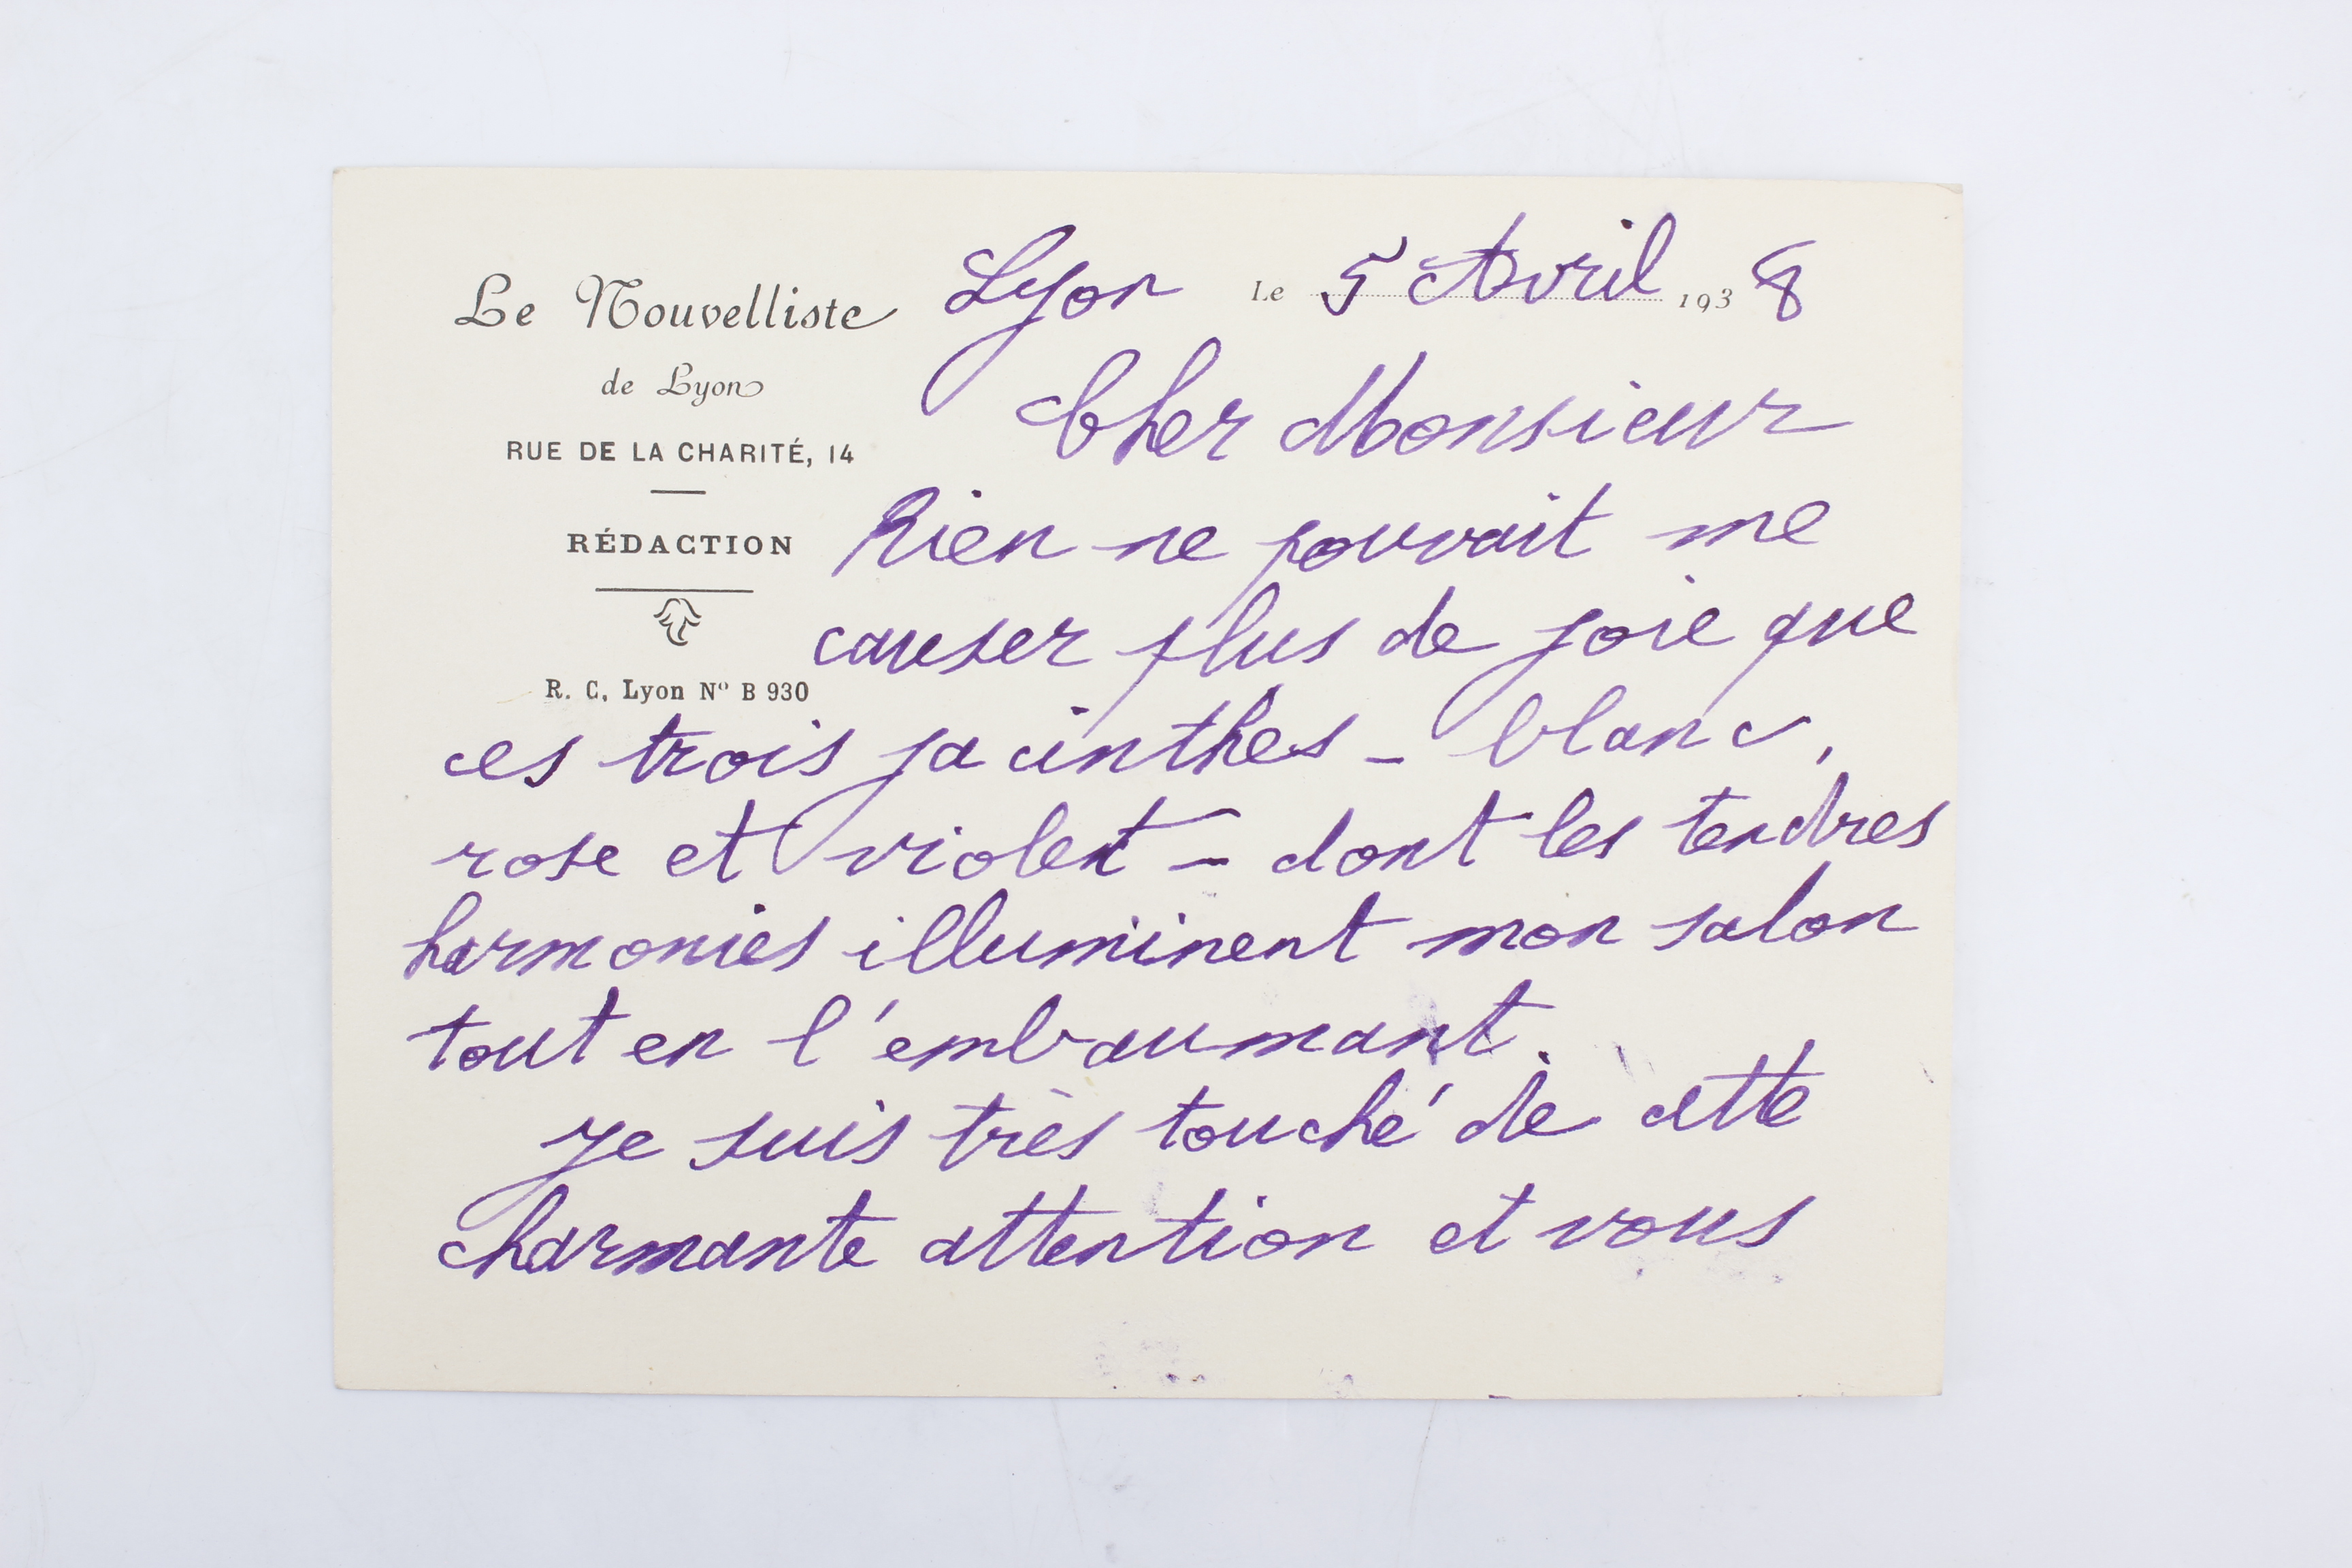 Le Nouvelliste
de Lyon
RUE DE LA CHARITÉ, 14
RÉDACTION
R. C. Lyon Nº B 930
Lyon Le 5 Avril 1938
Cher Monsieur
Rien ne pouvait me
causer plus de joie que
ces trois jacinthes – blanc,
rose et violet – dont les tendres
harmonies illuminent mon salon
tout en l'embaumant.
Je suis très touché de cette
charmante attention et vous